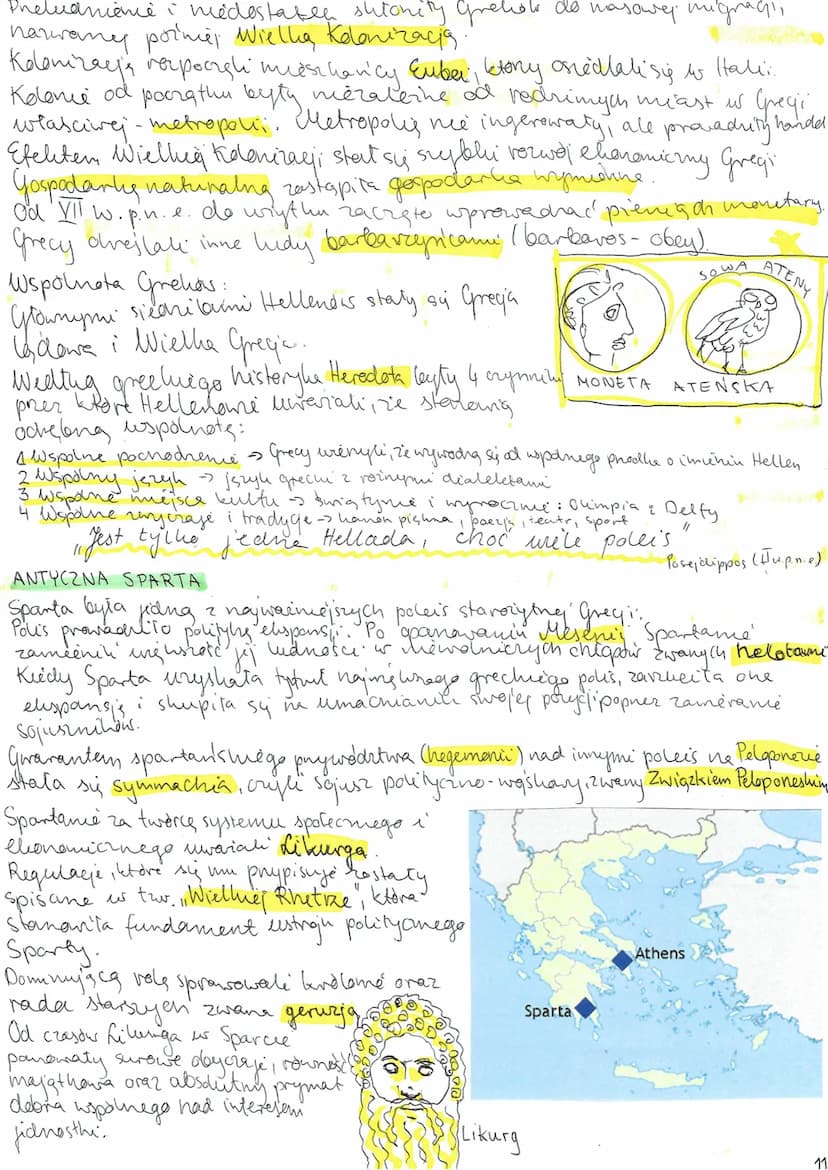 Przeludnienie i niedostatek skłoniły Greków do masowej migracji,
nazwanej później Wielką Kolonizacją.
Kolonizację rozpoczęli mieszkańcy Eubei, którzy osiedlali się w Italii.
Kolonie od początku były niezależne od rodzimych miast w Grecji
właściwej - metropolii. Metropolie nie ingerowały, ale prowadziły handel
Efektem Wielkiej Kolonizacji stał się szybki rozwój ekonomiczny Grecji
Gospodarkę naturalną zastąpiła gospodarka wymienna.
Od VII w. p.n.e. do użytku zaczęto wprowadzać pieniądz monetarny.
Grecy określali inne ludy barbarzyńcami (barbaros - obcy).
SOWA ATENY
MONETA ATEŃSKA
Wspólnota Greków:
Głównymi siedzibami Hellenów stały się Grecja
lądowa i Wielka Grecja.
Według greckiego historyka Herodota były 4 czynniki
przez które Hellenowie uważali, że stanowią
odrębną wspólnotę:
1 Wspólne pochodzenie → Grecy wierzyli, że wywodzą się od wspólnego przodka o imieniu Hellen
2 Wspólny język → język grecki z różnymi dialektami
3 Wspólne miejsca kultu → świątynie i wyrocznie: Olimpia i Delfy
4 Wspólne zwyczaje i tradycje → kanon piękna, poezja, teatr, sport
„Jest tylko jedna Hellada, choć wiele poleis"
Posejdippos (II w.p.n.e)
ANTYCZNA SPARTA
Sparta była jedną z najważniejszych poleis starożytnej Grecji.
Polis prowadziło politykę ekspansji. Po opanowaniu Mesenii Spartanie
zamienili większość jej ludności w niewolniczych chłopów zwanych helotami
Kiedy Sparta uzyskała tytuł największego greckiego polis, zarzuciła ona
ekspansję i skupiła się na umacnianiu swojej pozycji poprzez zawieranie
sojuszników.
Gwarantem spartańskiego przywództwa (hegemonii) nad innymi poleis na Peloponezie
stała się symmachia, czyli sojusz polityczno-wojskowy, zwany Związkiem Peloponeskim
Spartanie za twórcę systemu społecznego i
ekonomicznego uważali Likurga.
Regulacje, które się mu przypisuje zostały
spisane w tzw. „Wielkiej Rhetrze", która
stanowiła fundament ustroju politycznego
Sparty.
Dominującą rolę sprawowali królowie oraz
rada starszych zwana geruzją
Od czasów Likurga w Sparcie
panowały surowe obyczaje, równość
majątkowa oraz absolutny prymat
dobra wspólnego nad interesem
jednostki.
Athens
Sparta
Likurg
11